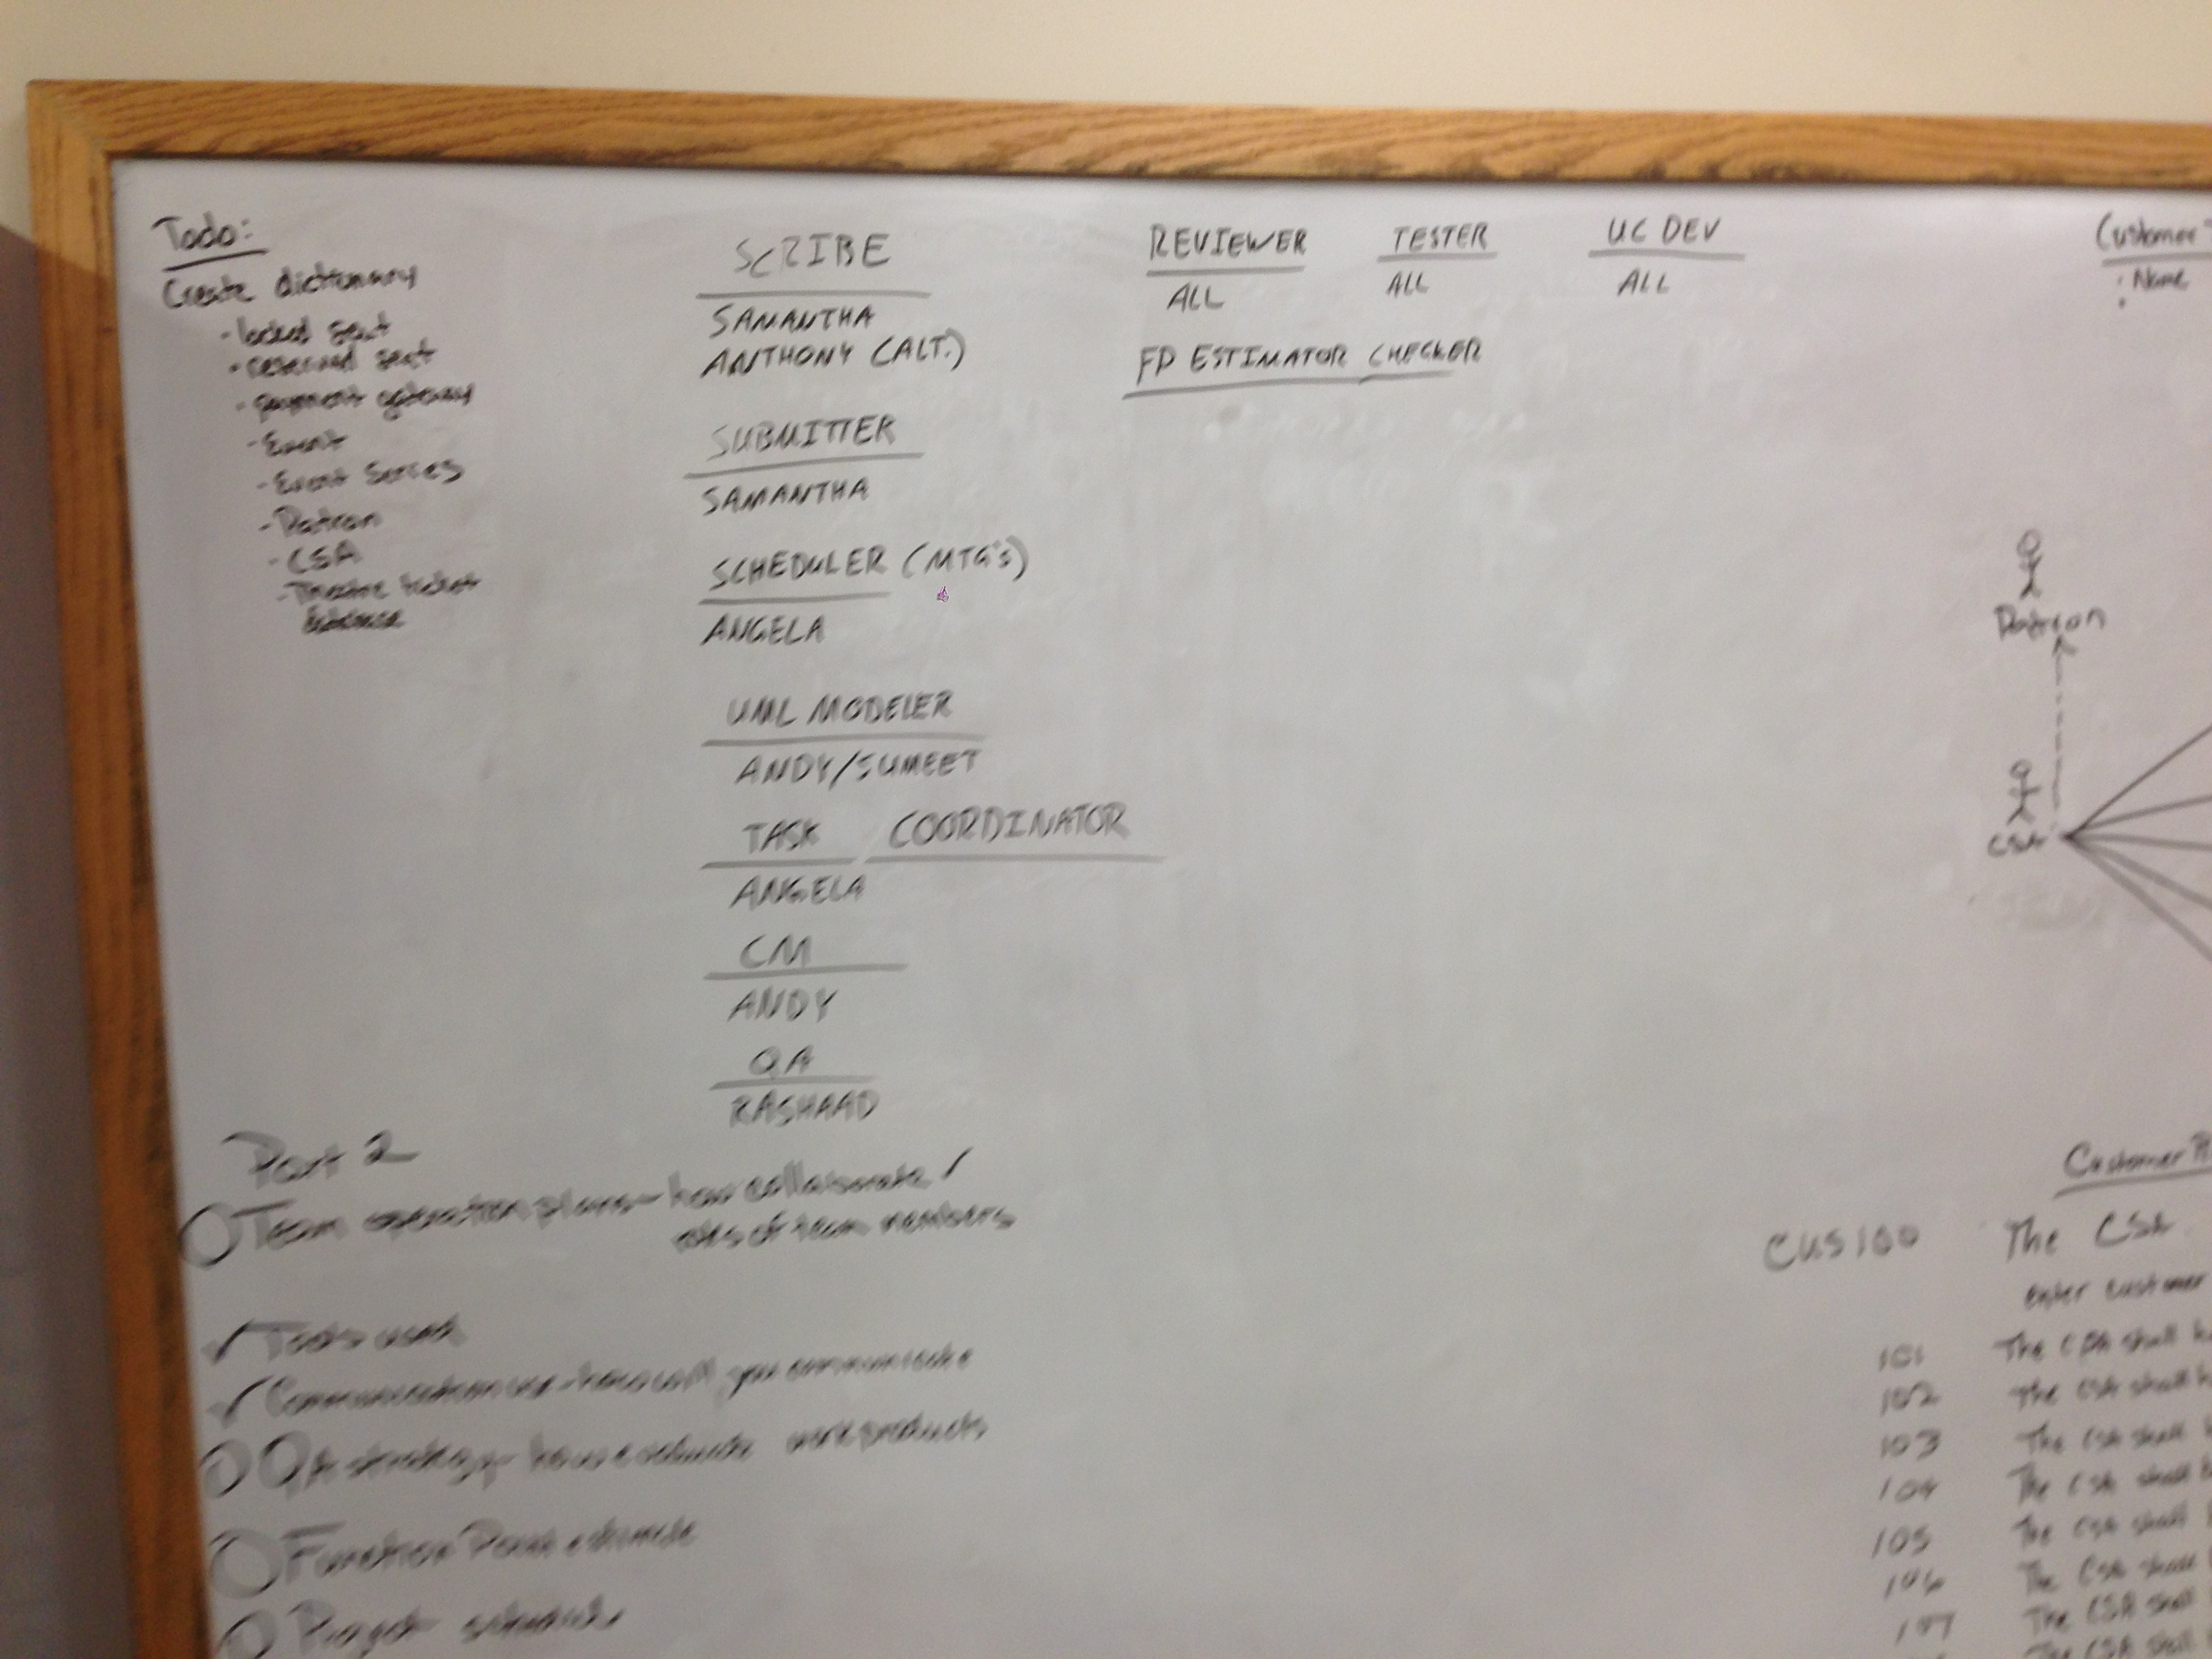 Todo:
Create dictionary
- locked seat
- reserved seat
- payment gateway
- Event
- Event Series
- Patron
- CSA
- Theatre ticket
SCRIBE
SAMANTHA
ANTHONY (ALT.)
SUBMITTER
SAMANTHA
SCHEDULER (MTG'S)
ANGELA
UML MODELER
ANDY/SUMEET
TASK COORDINATOR
ANGELA
CM
ANDY
QA
RASHAAD
REVIEWER TESTER UC DEV
ALL ALL ALL
FP ESTIMATOR CHECKER
Customer
: Name
Patron
CSA
Part 2
Team operation plans - how collaborate /
of team members
✓ Tools used
✓ - how will you communicate
QA strategy - how evaluate work products
Function Point estimate
Project schedule
Customer
CUS100 The CSA
enter customer
101 The CSA shall
102 The CSA shall
103 The CSA shall
104 The CSA shall
105 The CSA shall
106 The CSA shall
107 The CSA shall
The CSA shall